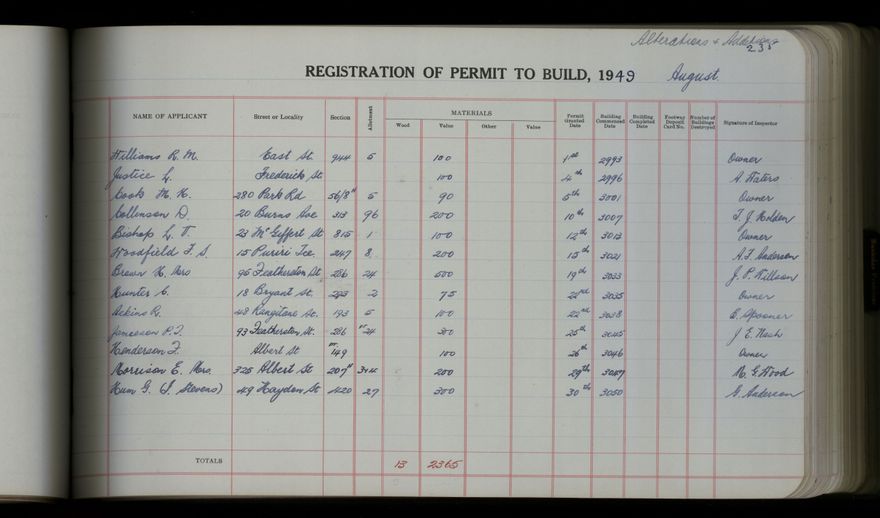 Alterations & Additions
231
REGISTRATION OF PERMIT TO BUILD, 1949 August.
NAME OF APPLICANT Street or Locality Section Allotment MATERIALS Permit Granted Date Building Commenced Date Building Completed Date Footway Deposit Card No. Number of Buildings Destroyed Signature of Inspector
Wood Value Other Value
Williams R. M. East St. 944 5 100 1st 2993 Owner
Justice L. Frederick St 100 4th 2996 A. Waters
Cook M. K. 280 Park Rd 5 90 5th 3001 Owner
Collenson D. 20 Burns Ave 313 96 200 10th 3007 T. J. Holden
Bishop L. T. 23 McGiffert St 815 1 100 12th 3013 Owner
Woodfield F. S. 15 Puriri Tce. 247 8 200 15th 3021 A. F. Anderson
Brown H. Mrs 95 Featherston St 286 24 500 19th 3033 J. P. Willson
Hunter C. 18 Bryant St. 2 75 22nd 3035 Owner
Adkins R. 48 Rangitane St. 193 5 100 22nd 3038 E. Spooner
Jameson P. J. 93 Featherston St. 286 24 300 25th 3045 J. E. Nash
Henderson F. Albert St 149 100 26th 3046 Owner
Morrison E. Mrs. 325 Albert St 207 200 29th 3047 M. G. Wood
Hum G. (J. Stevens) 49 Haydon St 1420 27 300 30th 3050 G. Anderson
TOTALS 13 2365